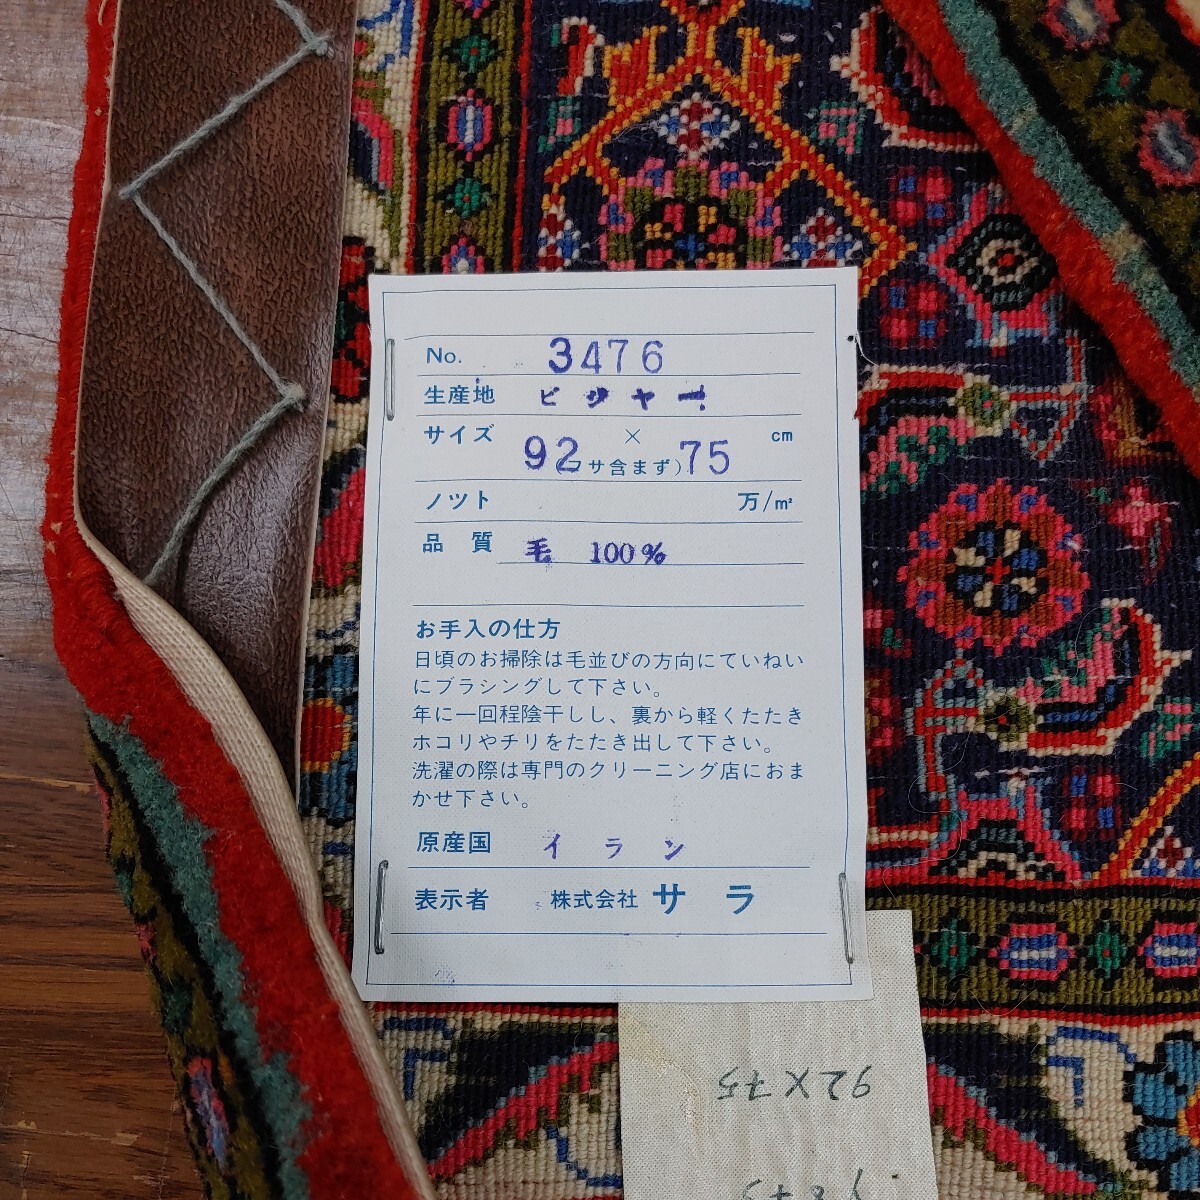 No. 3476
生産地 ビジャー
サイズ 92 × 75 cm
(フサ含まず)
ノット 万/㎡
品質 毛 100%
お手入の仕方
日頃のお掃除は毛並びの方向にていねい
にブラシングして下さい。
年に一回程陰干しし、裏から軽くたたき
ホコリやチリをたたき出して下さい。
洗濯の際は専門のクリーニング店におま
かせ下さい。
原産国 イラン
表示者 株式会社 サラ
92×75